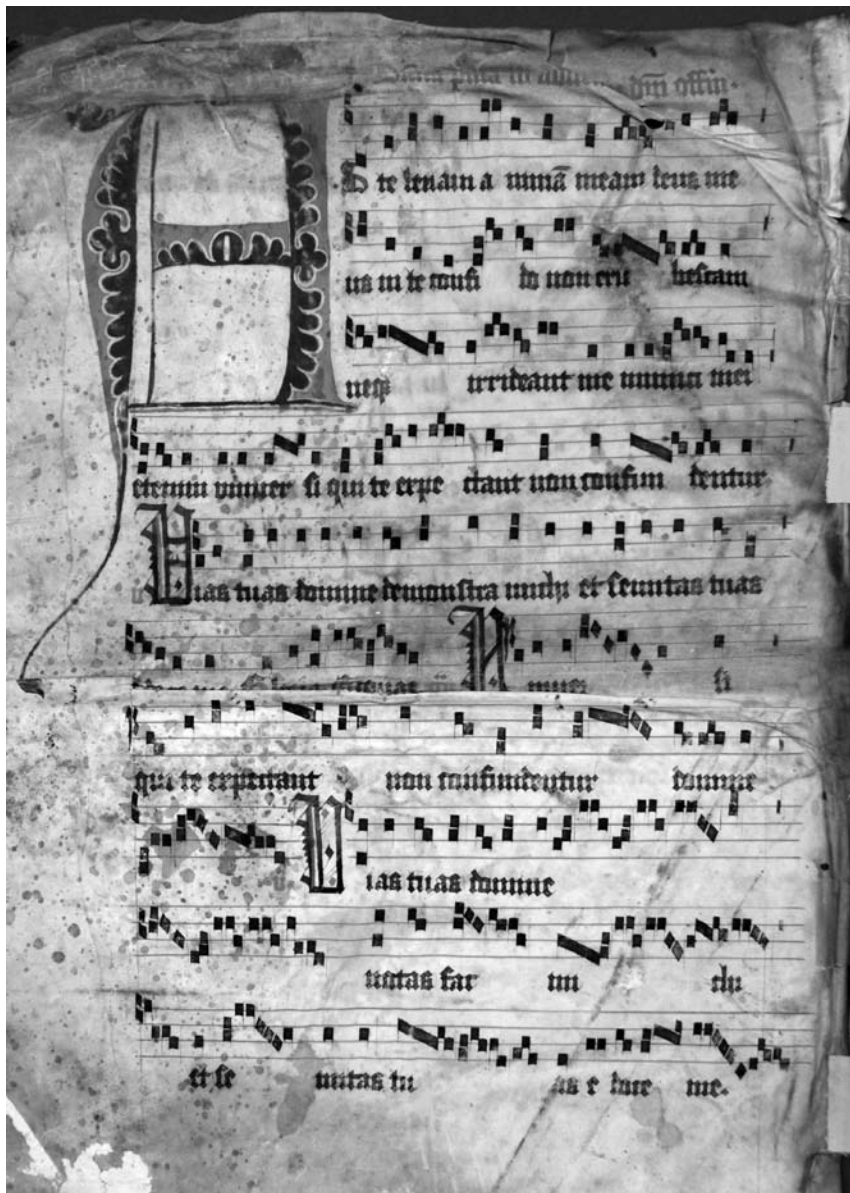 dñi offin.
A D te leuaui a nimā meam deus me
us in te confi do non eru bescam
neqȝ irrideant me inimici mei
etenim vniuer si qui te expe ctant non confun dentur
Vias tuas domine demonstra michi et semitas tuas
Vniuer si
qui te expectant non confundentur domine
Vias tuas domine
notas fac mi chi
et se mitas tu as e doce me.